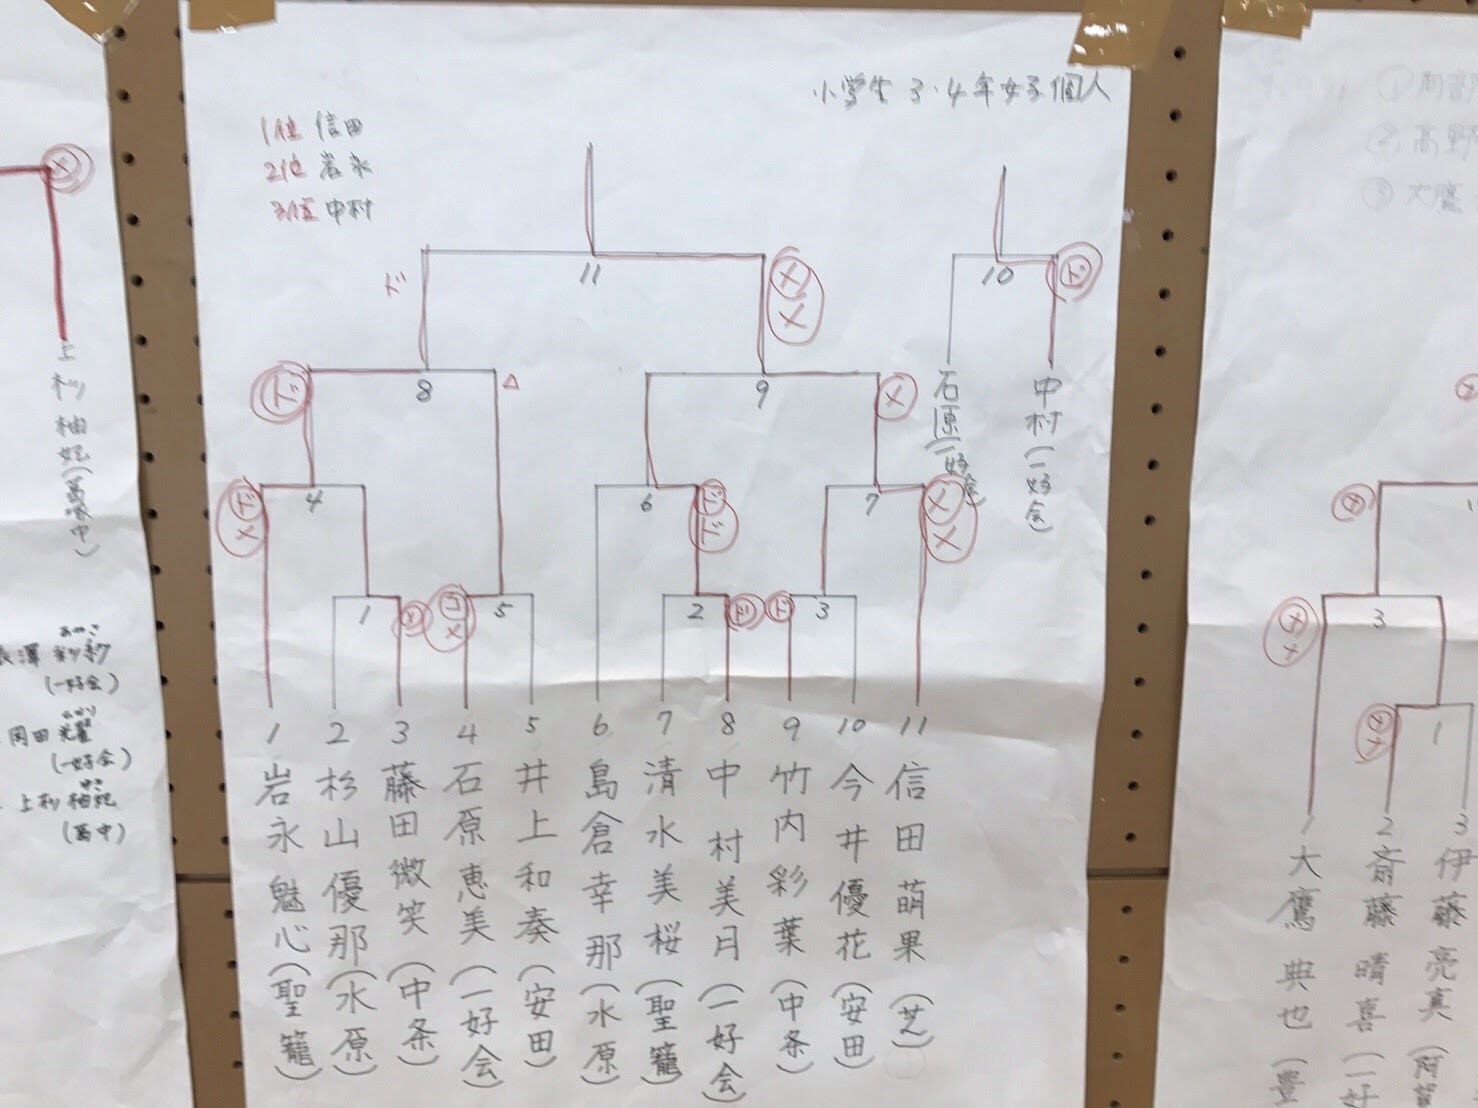 小学生 3・4年女子個人
1位 信田
2位 岩永
3位 中村
11
ド
メ
メ
10
ド
石原(一好会)
中村(一好会)
ド
8
△
9
メ
ド
メ
4
6
ド
ド
7
メ
メ
1
コ
メ
5
2
ド
ド
3
1 岩永魅心(聖籠)
2 杉山優那(水原)
3 藤田微笑(中条)
4 石原恵美(一好会)
5 井上和奏(安田)
6 島倉幸那(水原)
7 清水美桜(聖籠)
8 中村美月(一好会)
9 竹内彩葉(中条)
10 今井優花(安田)
11 信田萌果(芝)
メ
上杉柚妃
(一好会)
岡田
(一好会)
上杉柚妃
① 
② 高野
③ 大鷹
3
1
1 大鷹典也(豊
2 斎藤晴喜(一好
3 伊藤亮真(阿賀